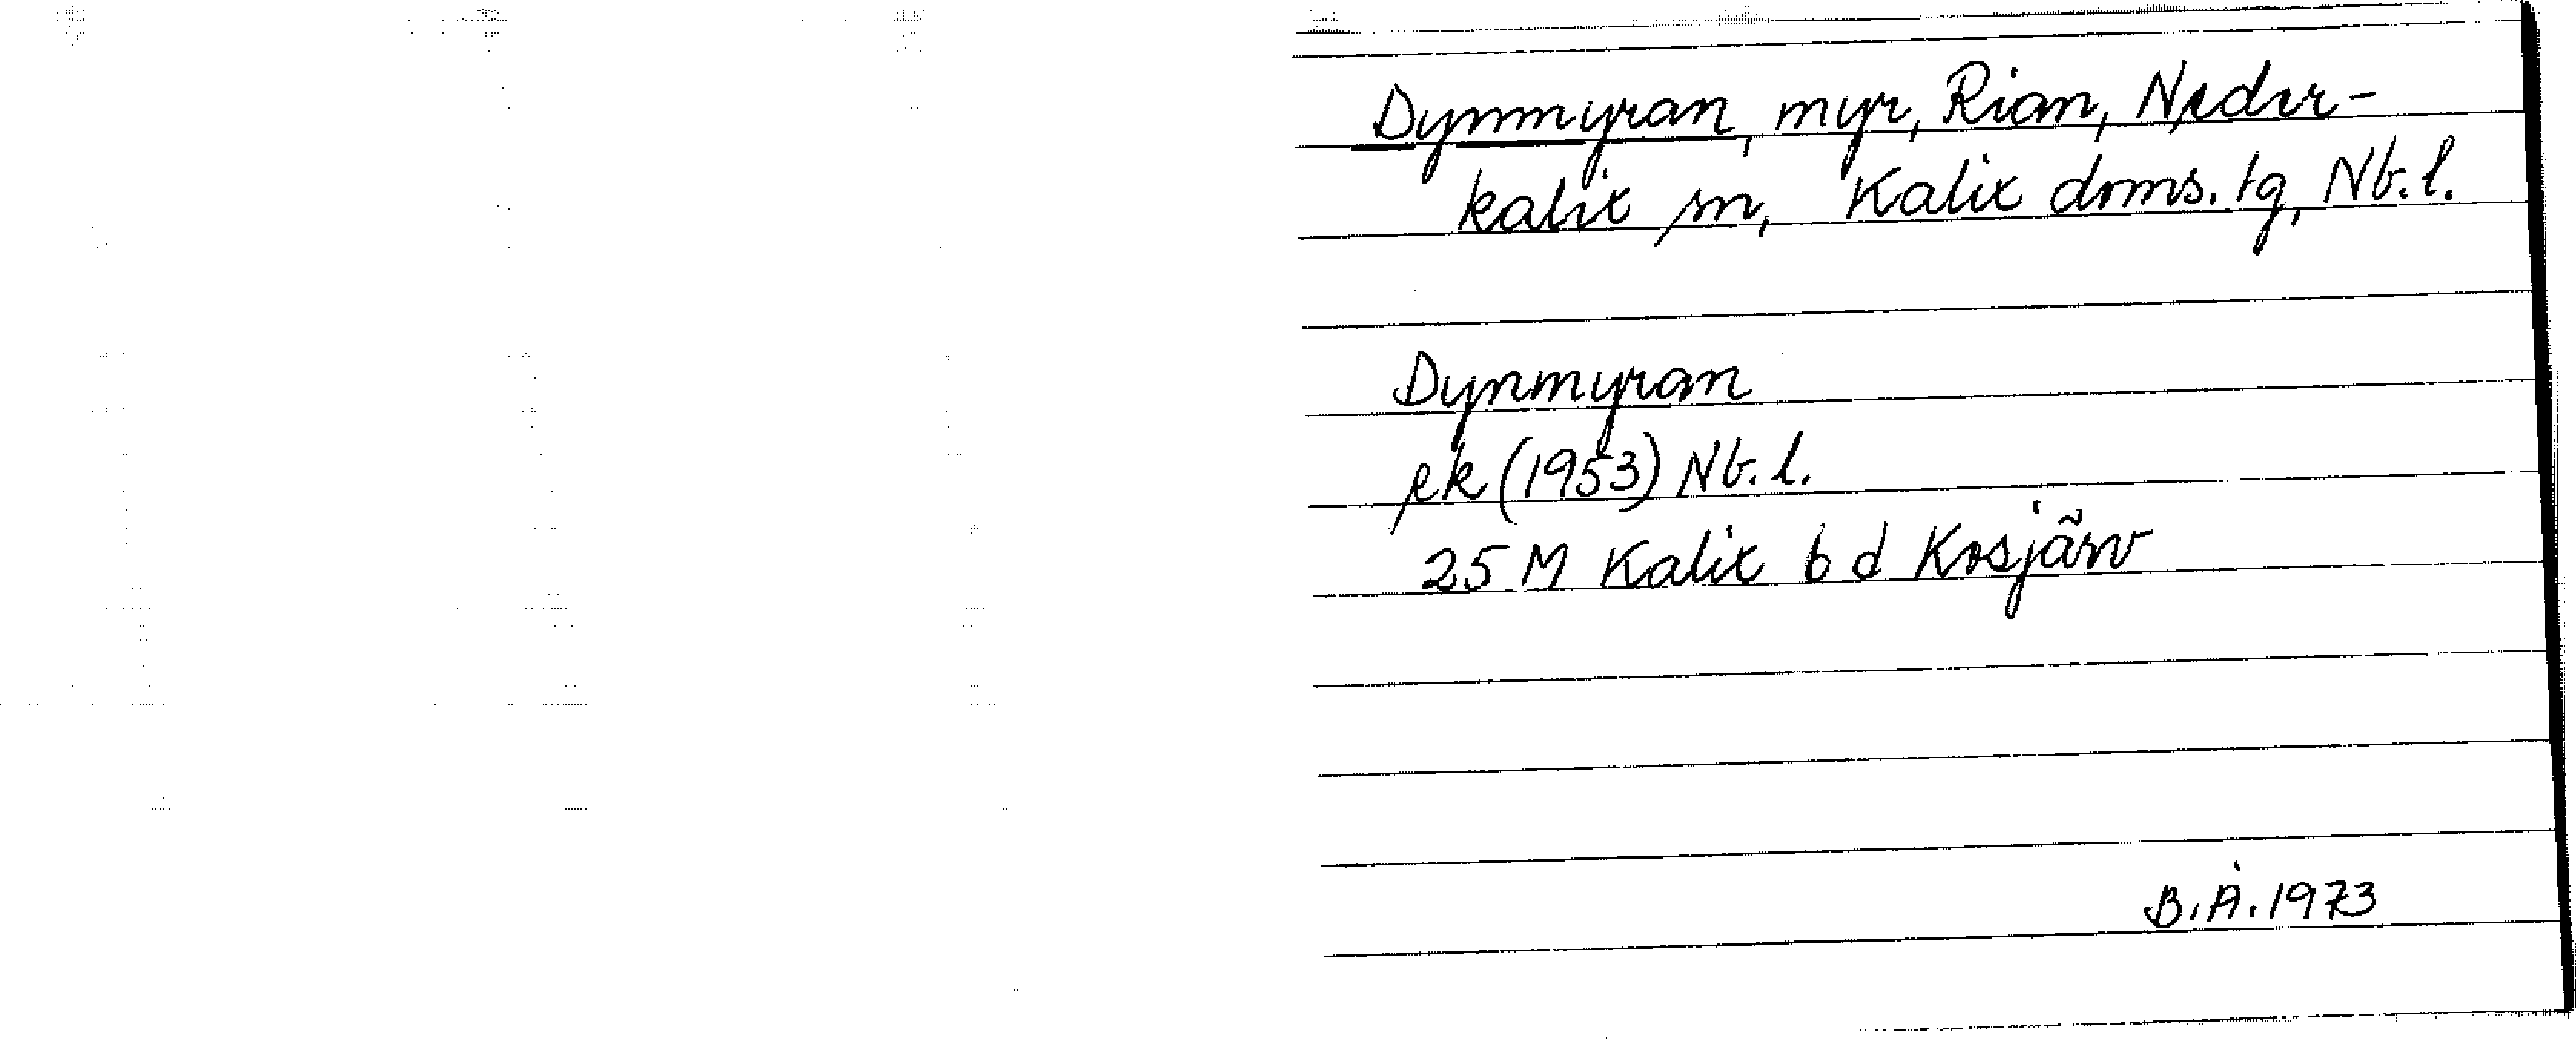 Dynmyran, myr, Rian, Neder-
kalix sn, Kalix doms. tg, Nb. l.
Dynmyran
ek (1953) Nb. l.
25 M Kalix 6 d Kosjärv
B. Å. 1973